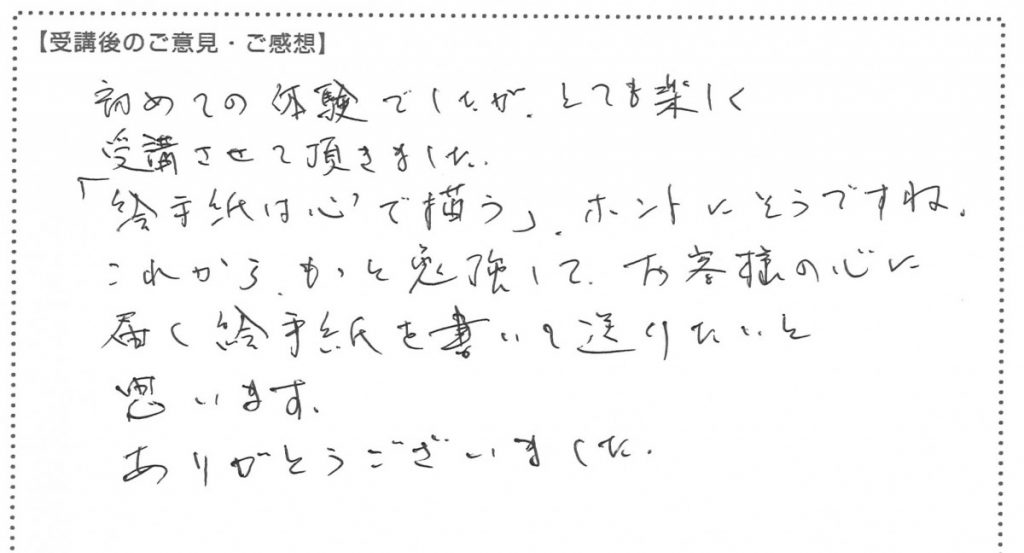 【受講後のご意見・ご感想】
初めての体験でしたが、とても楽しく
受講させて頂きました。
「絵手紙は心で描う」、ホントにそうですね。
これから、もっと勉強して、お客様の心に
届く絵手紙を書いて送りたいと
思います。
ありがとうございました。